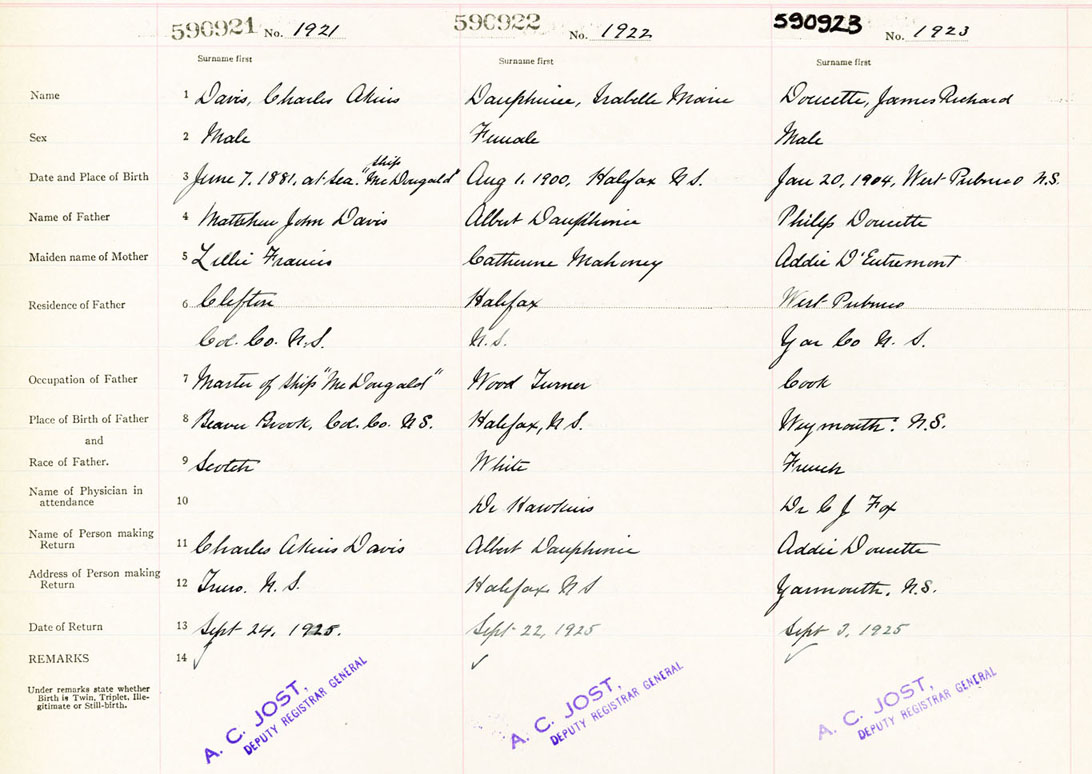 590921 No. 1921 590922 No. 1922 590923 No. 1923
Surname first Surname first Surname first
Name 1 Davis, Charles Akins Dauphinee, Isabelle Marie Doucette, James Richard
Sex 2 Male Female Male
ship
Date and Place of Birth 3 June 7, 1881, at sea. "McDougald" Aug 1, 1900, Halifax N S. Jan 20, 1904, West Pubnico N.S.
Name of Father 4 Matthew John Davis Albert Dauphinie Philip Doucette
Maiden name of Mother 5 Lillie Francis Catherine Mahoney Addie D'Entremont
Residence of Father 6 Clifton Halifax West Pubnico
Col. Co. N.S. N.S. Yar Co N. S.
Occupation of Father 7 Master of Ship "McDougald" Wood Turner Cook
Place of Birth of Father 8 Beaver Brook, Col. Co. N.S. Halifax, N S. Weymouth. N.S.
and
Race of Father. 9 Scotch White French
Name of Physician in
attendance 10 Dr Hawkins Dr C J Fox
Name of Person making
Return 11 Charles Akins Davis Albert Dauphinie Addie Doucette
Address of Person making
Return 12 Truro. N. S. Halifax N S Yarmouth, N.S.
Date of Return 13 Sept 24, 1925. Sept 22, 1925 Sept 3, 1925
REMARKS 14
Under remarks state whether
Birth is Twin, Triplet, Ille-
gitimate or Still-birth.
A. C. JOST, A. C. JOST, A. C. JOST,
DEPUTY REGISTRAR GENERAL DEPUTY REGISTRAR GENERAL DEPUTY REGISTRAR GENERAL